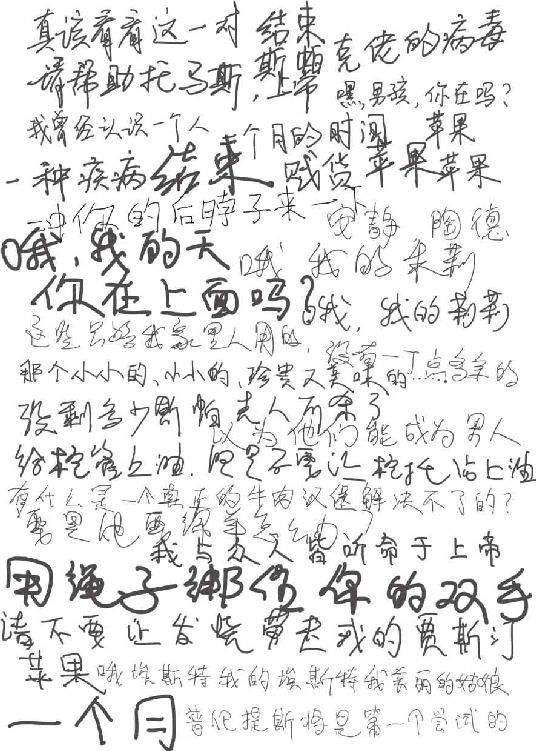 真该看看这一对 结束
克佬的病毒
请帮助托马斯，上帝
斯帕
嘿，男孩，你在吗？
我曾经认识一个人
一个月的时间 苹果
一种疾病 结束 贱货 苹果 苹果
冲你的后脖子来一下
安静 陶德
哦，我的天
哦 我的朱莉
你在上面吗？
哦，我的莉莉
这些只给我家里人用的，
没有一丁点多余的
那个小小的、小小的，珍贵又美味的
没剩多少斯帕克人了
以为他们能成为男人
给枪管上油，但是不要让枪托沾上油
有什么是一个真正的牛肉汉堡解决不了的？
我与众人皆听命于上帝
用绳子绑住 你的双手
请不要让发烧带走我的贾斯汀
苹果
哦埃斯特我的埃斯特我美丽的姑娘
一个月
普Dell提斯将是第一个尝试的